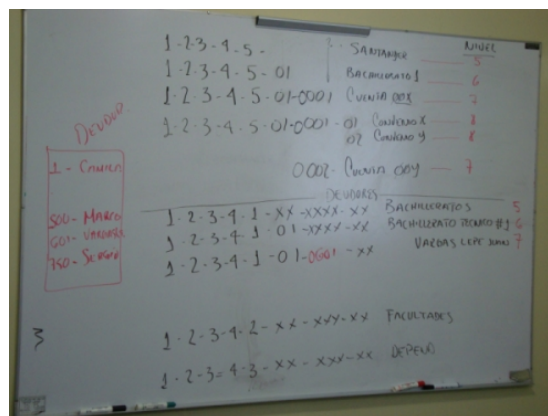 NIVEL
1-2-3-4-5- SANTANDER 5
1-2-3-4-5-01 BACHILLERATO 1 6
1-2-3-4-5-01-0001 CUENTA 00X 7
1-2-3-4-5-01-0001-01 CONVENIO X 8
02 CONVENIO Y 8
0002- CUENTA 00Y 7
DEUDORES
1-2-3-4-1-XX-XXXX-XX BACHILLERATOS 5
1-2-3-4-1-01-XXXX-XX BACHILLERATO TECNICO #1 6
1-2-3-4-1-01-0601-XX VARGAS LEPE JUAN 7
1-2-3-4-2-XX-XXX-XX FACULTADES
1-2-3-4-3-XX-XXX-XX
DEUDOR
1-CAMILA
500-MARCO
601-VARGAS
750-SERGIO
3